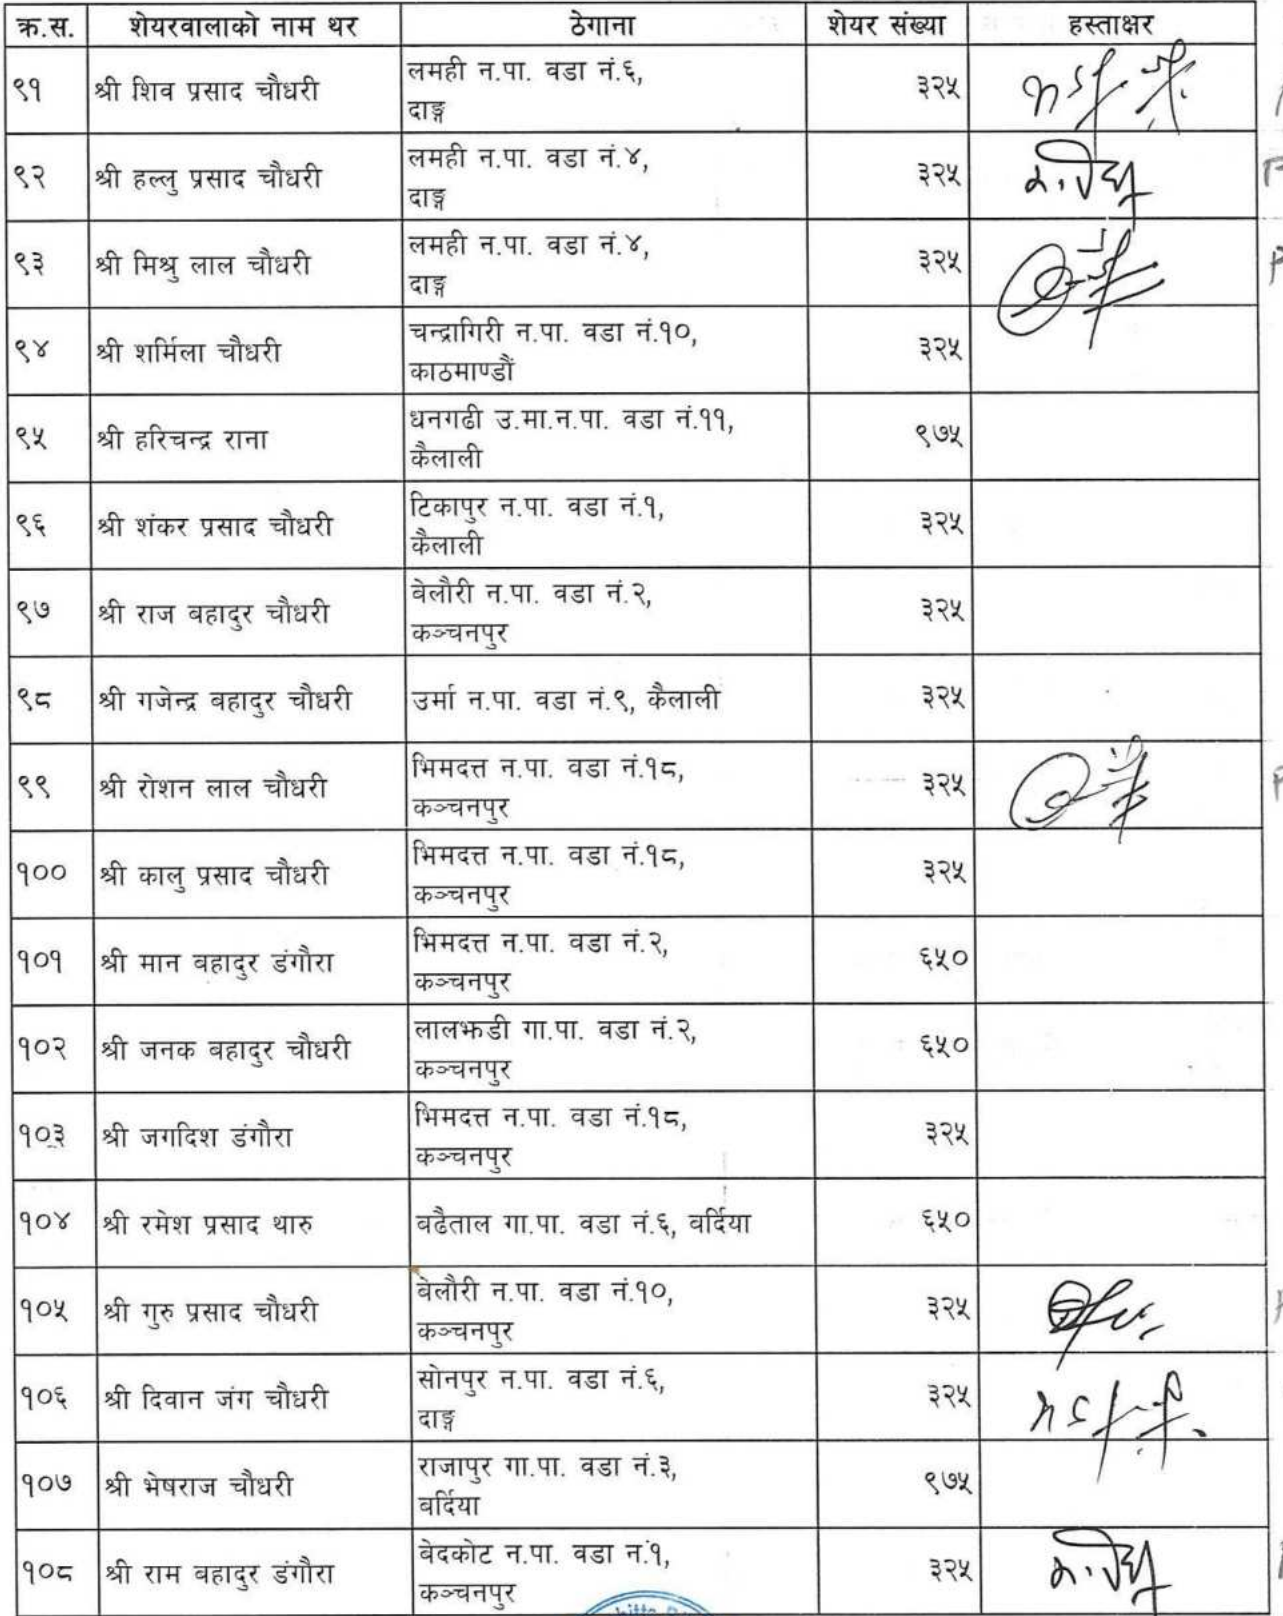 क्र.स. शेयरवालाको नाम थर ठेगाना शेयर संख्या हस्ताक्षर
९१ श्री शिव प्रसाद चौधरी लमही न.पा. वडा नं.६, ३२५
दाङ्ग
९२ श्री हल्लु प्रसाद चौधरी लमही न.पा. वडा नं.४, ३२५
दाङ्ग
९३ श्री मिश्रु लाल चौधरी लमही न.पा. वडा नं.४, ३२५
दाङ्ग
९४ श्री शर्मिला चौधरी चन्द्रागिरी न.पा. वडा नं.१०, ३२५
काठमाण्डौं
९५ श्री हरिचन्द्र राना धनगढी उ.मा.न.पा. वडा नं.११, ९७५
कैलाली
९६ श्री शंकर प्रसाद चौधरी टिकापुर न.पा. वडा नं.१, ३२५
कैलाली
९७ श्री राज बहादुर चौधरी बेलौरी न.पा. वडा नं.२, ३२५
कञ्चनपुर
९८ श्री गजेन्द्र बहादुर चौधरी उर्मा न.पा. वडा नं.९, कैलाली ३२५
९९ श्री रोशन लाल चौधरी भिमदत्त न.पा. वडा नं.१८, ३२५
कञ्चनपुर
१०० श्री कालु प्रसाद चौधरी भिमदत्त न.पा. वडा नं.१८, ३२५
कञ्चनपुर
१०१ श्री मान वहादुर डंगौरा भिमदत्त न.पा. वडा नं.२, ६५०
कञ्चनपुर
१०२ श्री जनक बहादुर चौधरी लालझडी गा.पा. वडा नं.२, ६५०
कञ्चनपुर
१०३ श्री जगदिश डंगौरा भिमदत्त न.पा. वडा नं.१८, ३२५
कञ्चनपुर
१०४ श्री रमेश प्रसाद थारु वढैताल गा.पा. वडा नं.६, वर्दिया ६५०
१०५ श्री गुरु प्रसाद चौधरी बेलौरी न.पा. वडा नं.१०, ३२५
कञ्चनपुर
१०६ श्री दिवान जंग चौधरी सोनपुर न.पा. वडा नं.६, ३२५
दाङ्ग
१०७ श्री भेषराज चौधरी राजापुर गा.पा. वडा नं.३, ९७५
बर्दिया
१०८ श्री राम वहादुर डंगौरा बेदकोट न.पा. वडा नं.१, ३२५
कञ्चनपुर